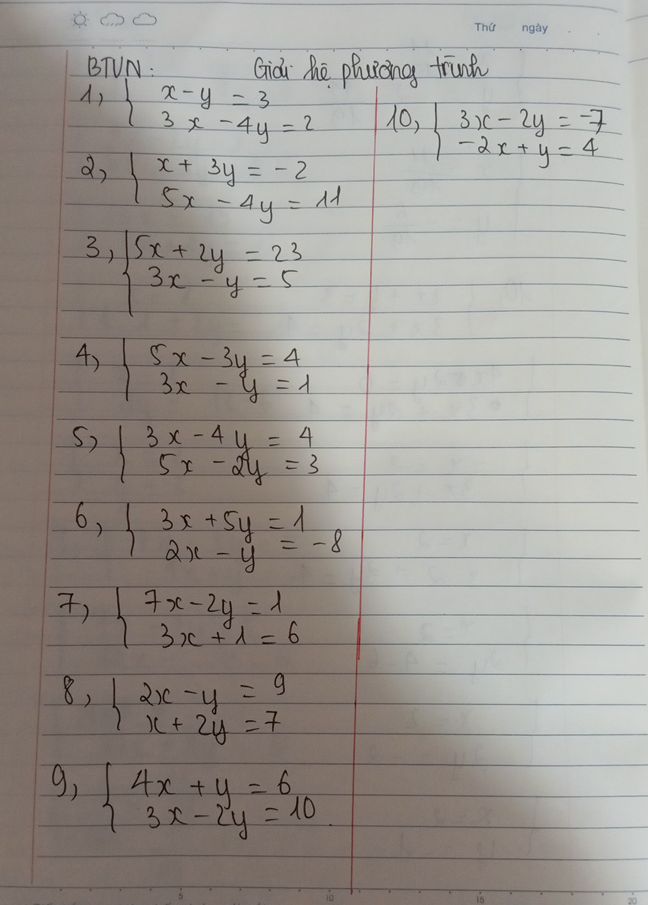 Thứ ngày
BTVN: Giải hệ phương trình
1, { x - y = 3
3x - 4y = 2
2, { x + 3y = -2
5x - 4y = 11
3, { 5x + 2y = 23
3x - y = 5
4, { 5x - 3y = 4
3x - y = 1
5, { 3x - 4y = 4
5x - 2y = 3
6, { 3x + 5y = 1
2x - y = -8
7, { 7x - 2y = 1
3x + 1 = 6
8, { 2x - y = 9
x + 2y = 7
9, { 4x + y = 6
3x - 2y = 10.
10, { 3x - 2y = -7
-2x + y = 4
5 10 15 20